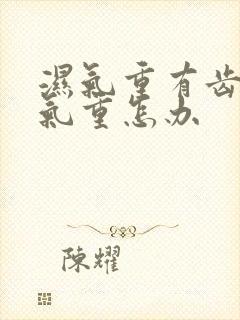 濕氣重有齿
氣重怎办
陳耀